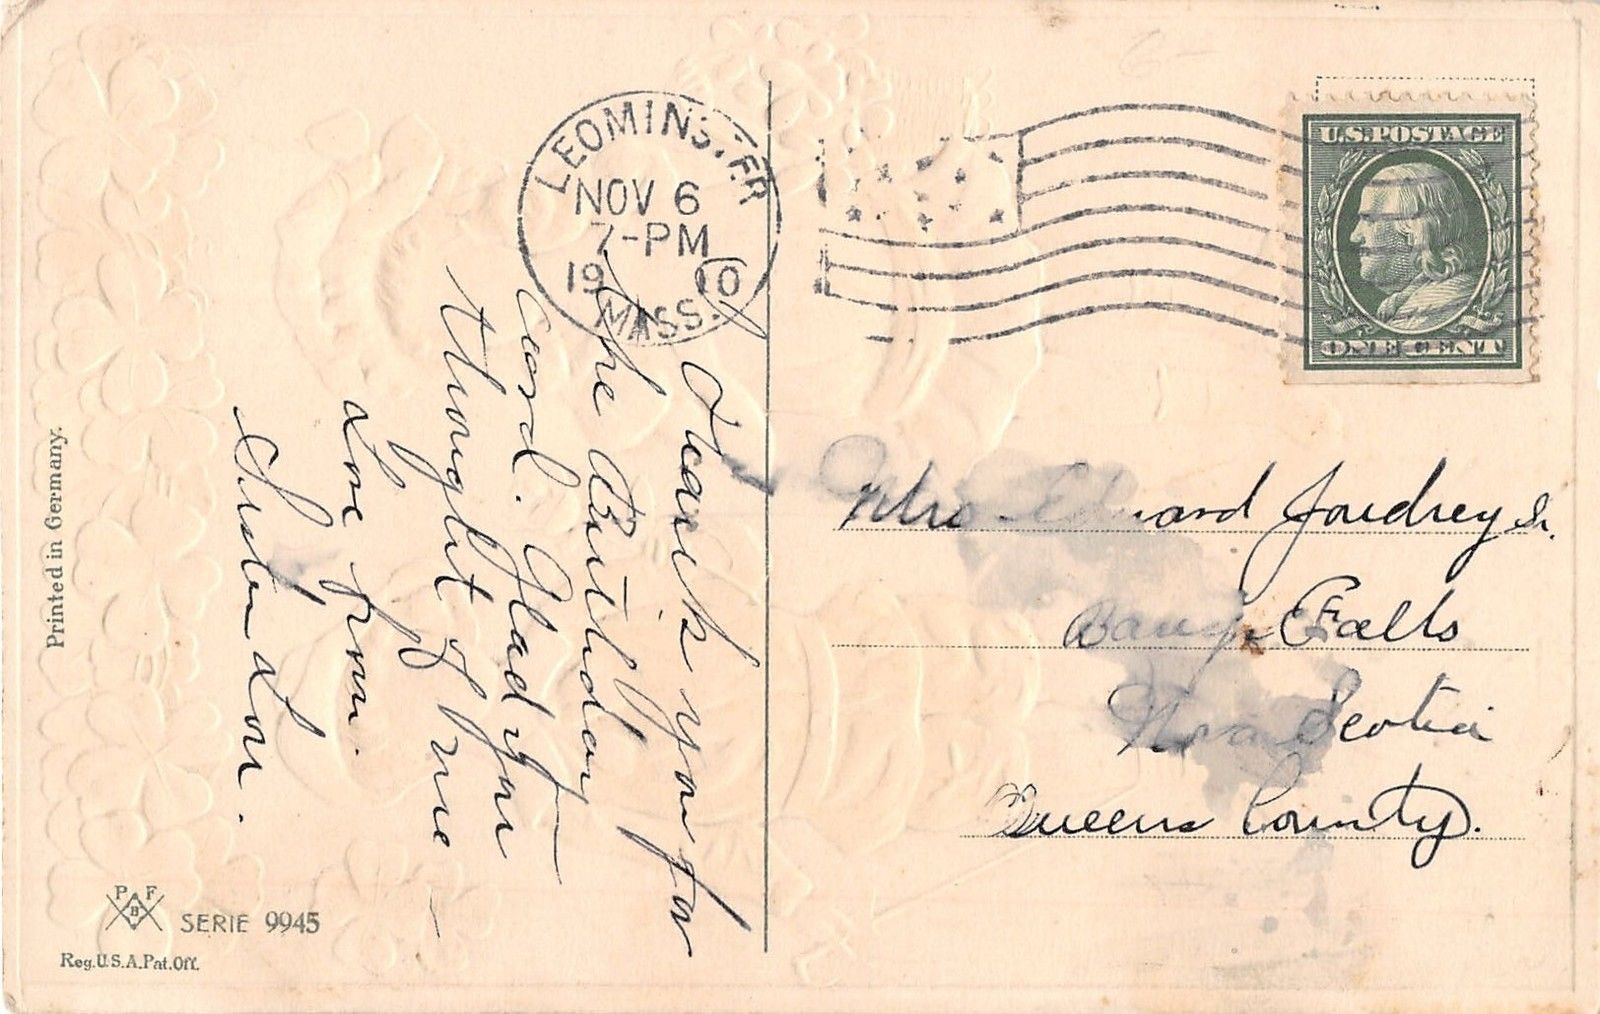 LEOMINSTER
NOV 6
7-PM
1910
MASS.
U.S. POSTAGE
ONE CENT
Thank you for
the Birthday
card. Glad you
thought of me
Love from
Sister Lou.
Mrs Edward Joudrey Sr.
Bangs Falls
Nova Scotia
Queens County.
Printed in Germany.
P F
B
SERIE 9945
Reg. U.S.A. Pat. Off.